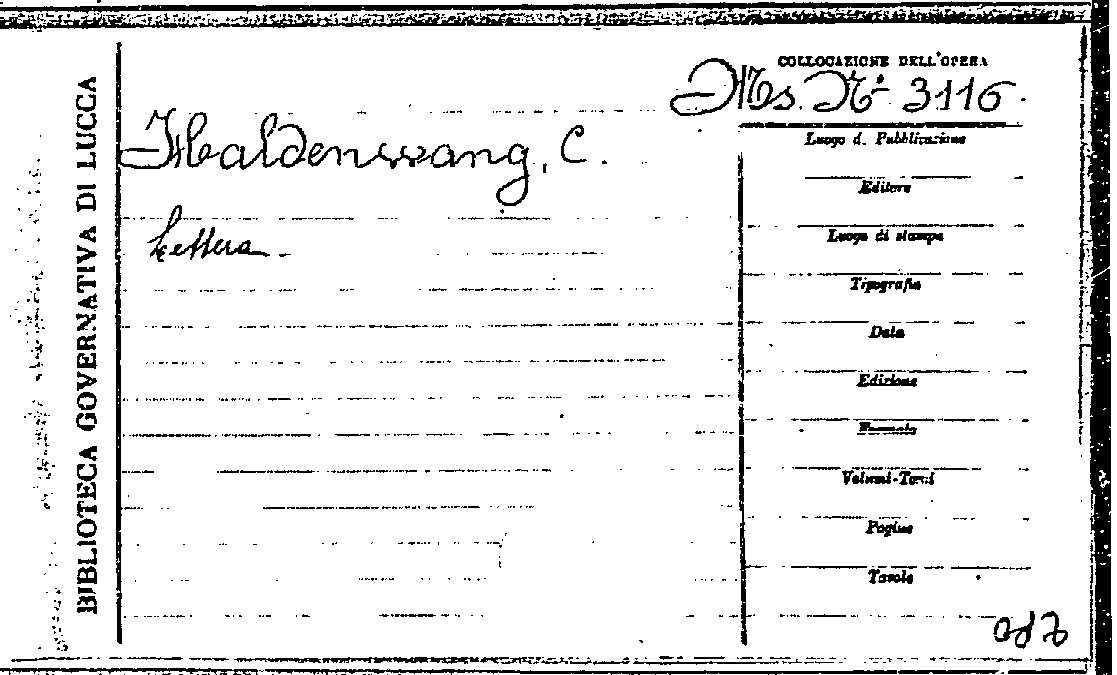 BIBLIOTECA GOVERNATIVA DI LUCCA
COLLOCAZIONE DELL'OPERA
Ms. Nº 3116.
Haldenwang, C.
Lettera.
Luogo d. Pubblicazione
Editore
Luogo di stampa
Tipografia
Data
Edizione
Formato
Volumi-Tomi
Pagine
Tavole